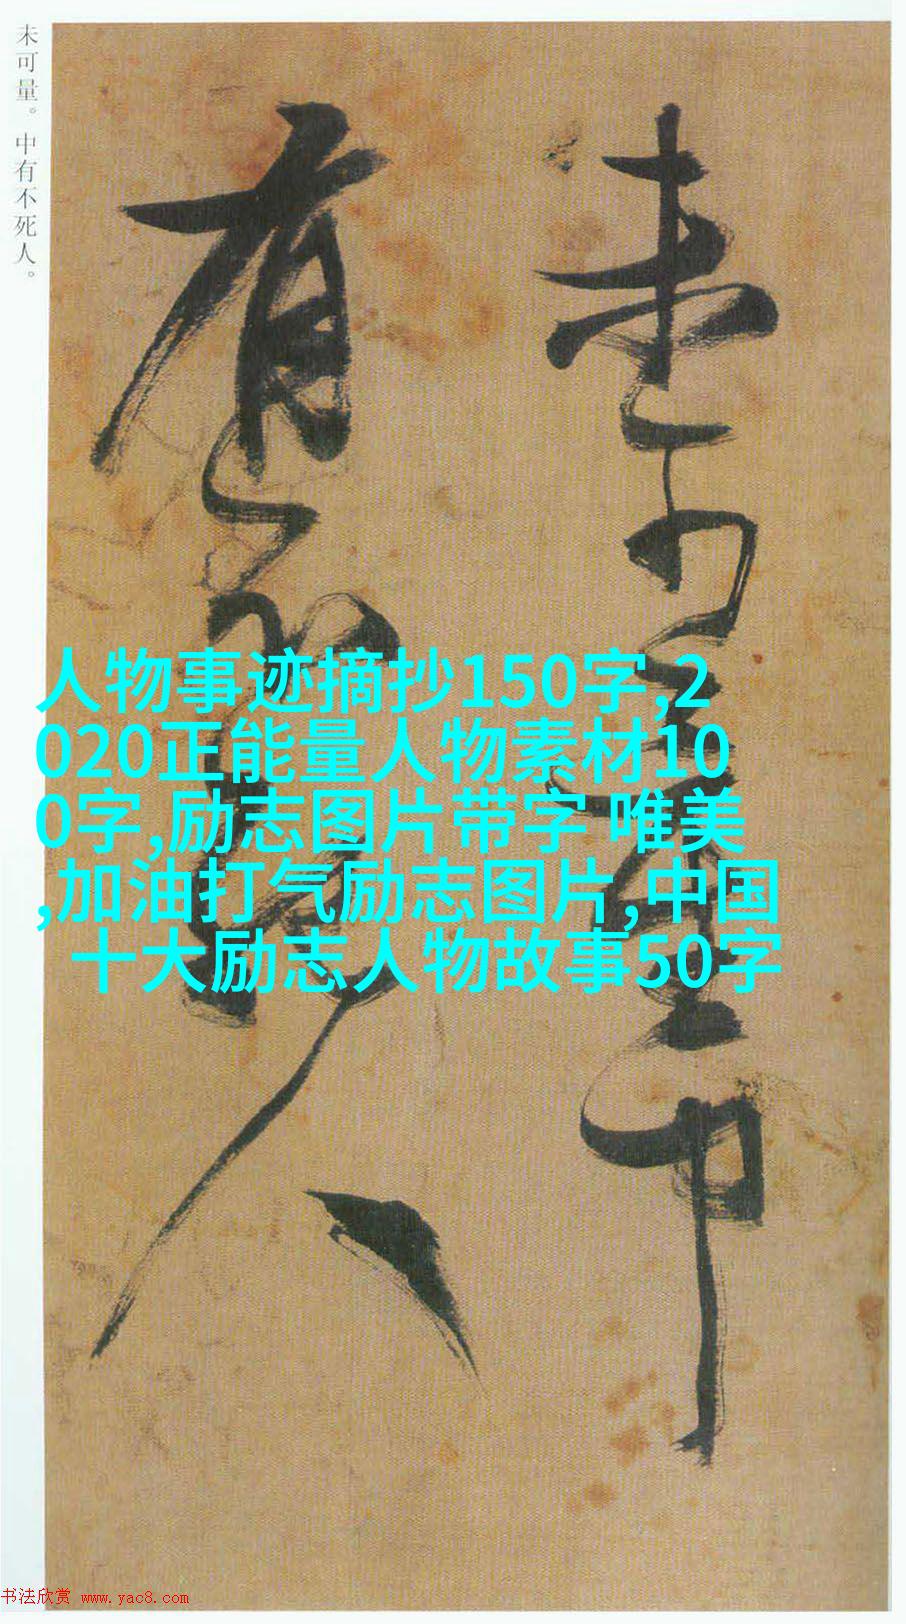 未可量。中有不死人。
未可量中
有不死人
人物事迹摘抄150字,2
020正能量人物素材10
0字,励志图片带字 唯美
,加油打气励志图片,中国
十大励志人物故事50字
书法欣赏 www.yac8.com